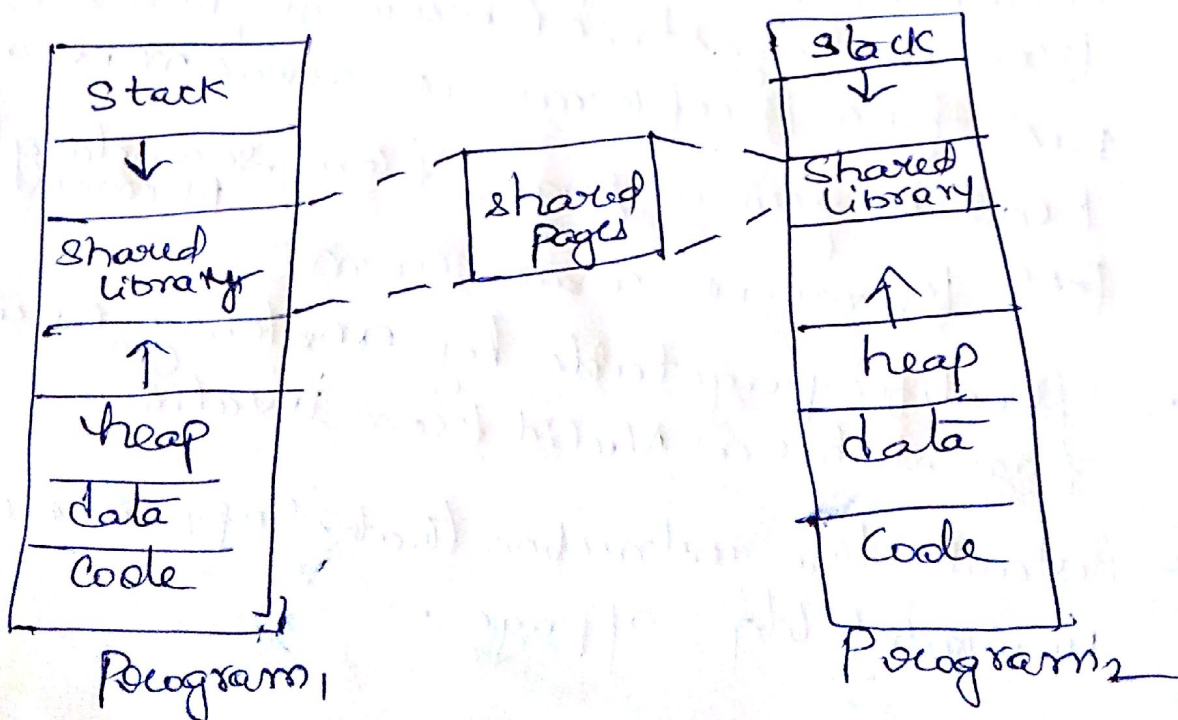 Stack
Shared
Library
heap
data
Code
Program1
shared
pages
Stack
Shared
Library
heap
data
Code
Program2